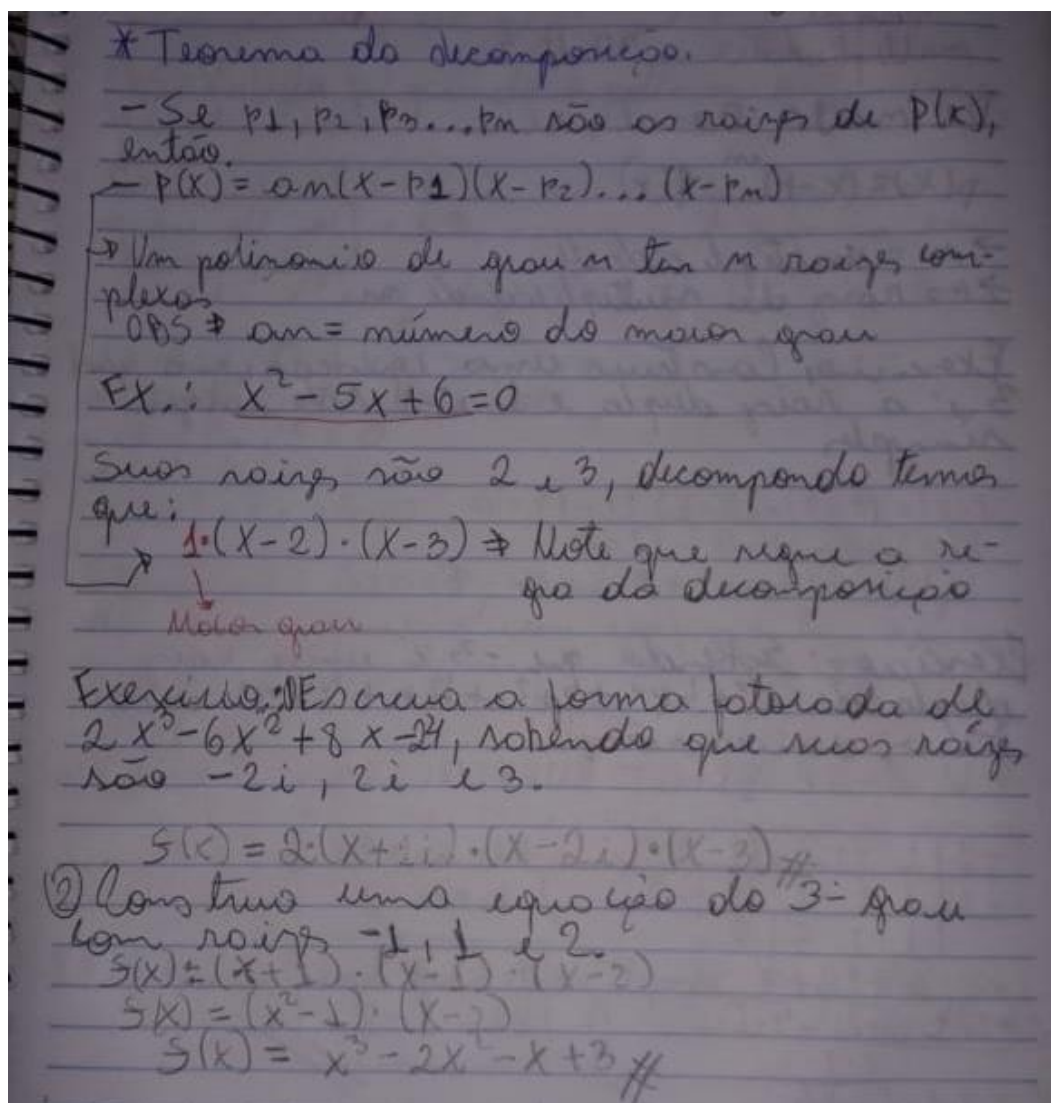 * Teorema da decomposição.
- Se p1, p2, p3...pn são as raizes de P(x),
então.
- P(X) = an(X-p1)(X-p2)...(X-pn)
→ Um polinomio de grau n tem n raizes com-
plexas
OBS → an = número do maior grau
EX.: x² - 5x + 6 = 0
Suas raizes são 2 e 3, decompondo temos
que:
1·(X-2)·(X-3) → Note que segue a re-
gra da decomposição
Maior grau
Exercicio: 1) Escreva a forma fatorada de
2x³ - 6x² + 8x - 24, sabendo que suas raízes
são -2i, 2i e 3.
S(x) = 2·(X+2i)·(X-2i)·(X-3)//
② Construa uma equação do 3º grau
com raizes -1, 1 e 2.
S(X) = (X+1)·(X-1)·(X-2)
S(X) = (x²-1)·(X-2)
S(X) = x³ - 2x² - x + 3 //